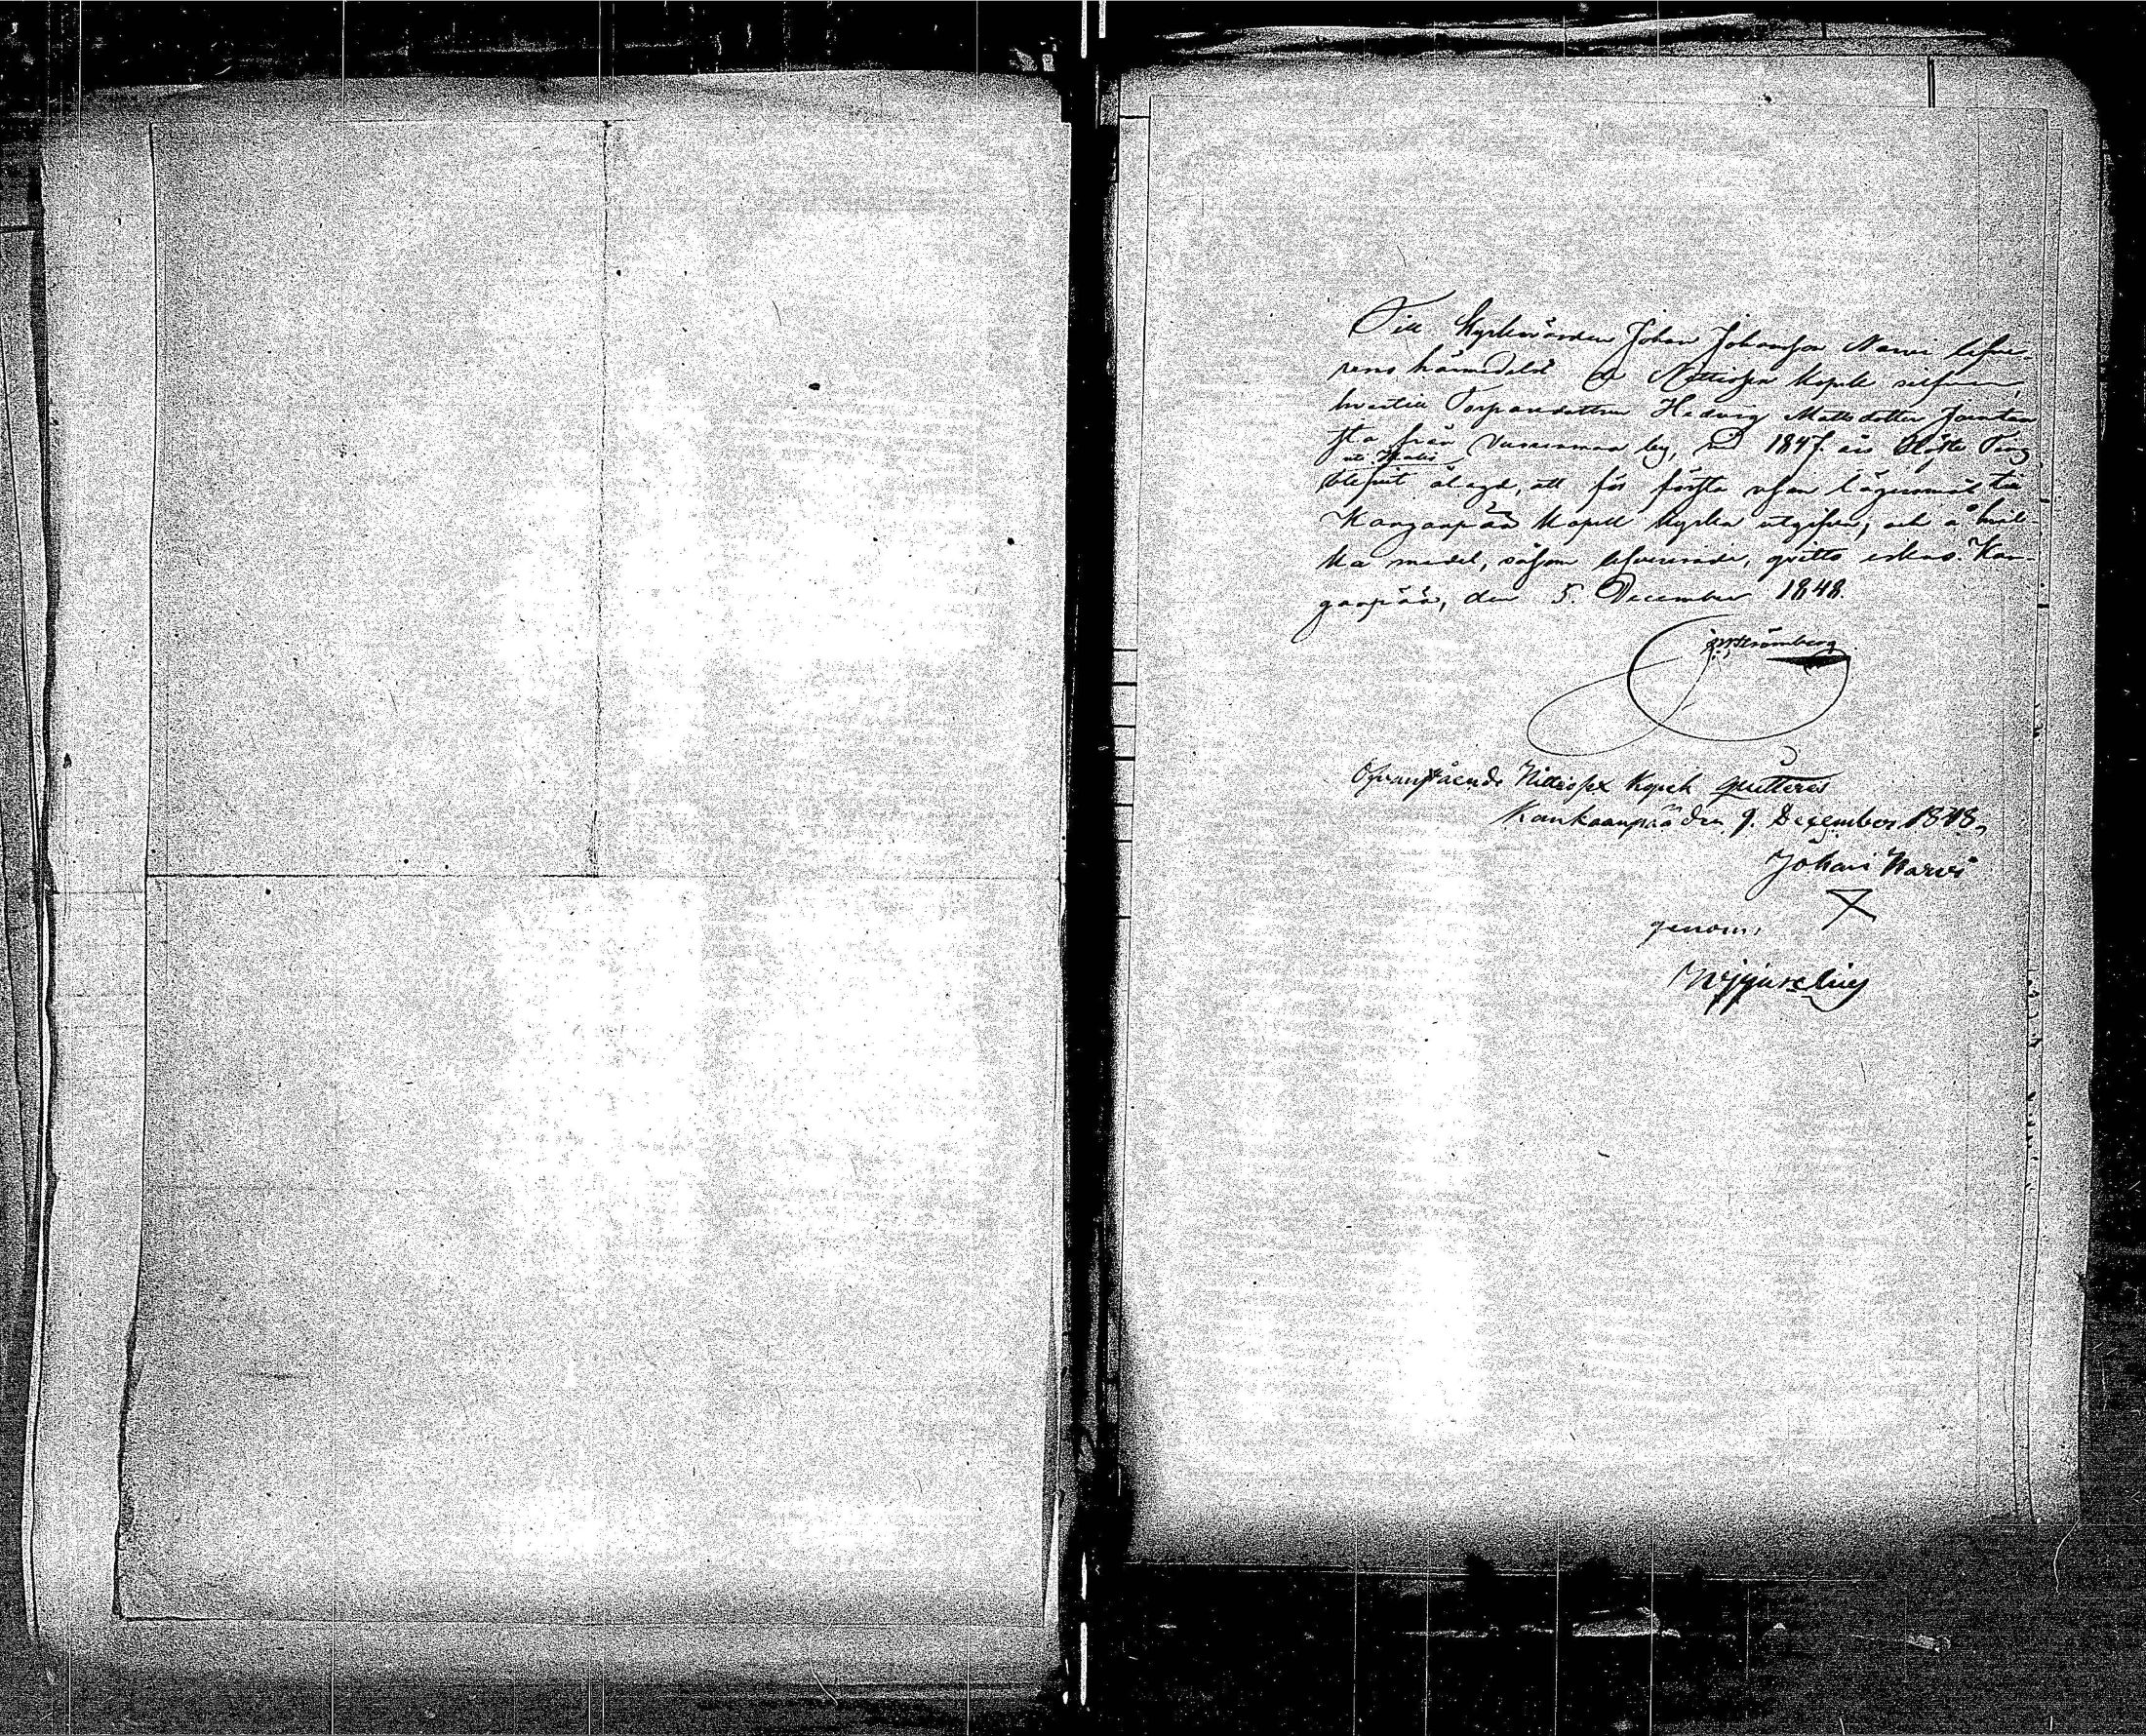 Till Kyrkovärden Johan Johansson Narvi lefve-
reras härmedelst de Nittiosex Kopek silfver,
hvartill Torparedottren Hedvig Mattsdotter
från Vuorenmaa by, vid 1847 års Höste Ting
blifvit ålagd, att för första resan lägersmål till
Kangaanpää Kapell Kyrka utgifva, och å hvil-
ka medel, såsom lefvererade, qvitto erhas. Kan-
gaanpää, den 5. December 1848.
Strömberg
Ofvanstående Nittiosex Kopek quitteras
Kankaanpää den 9. December 1848,
Johan Narvi
genom,